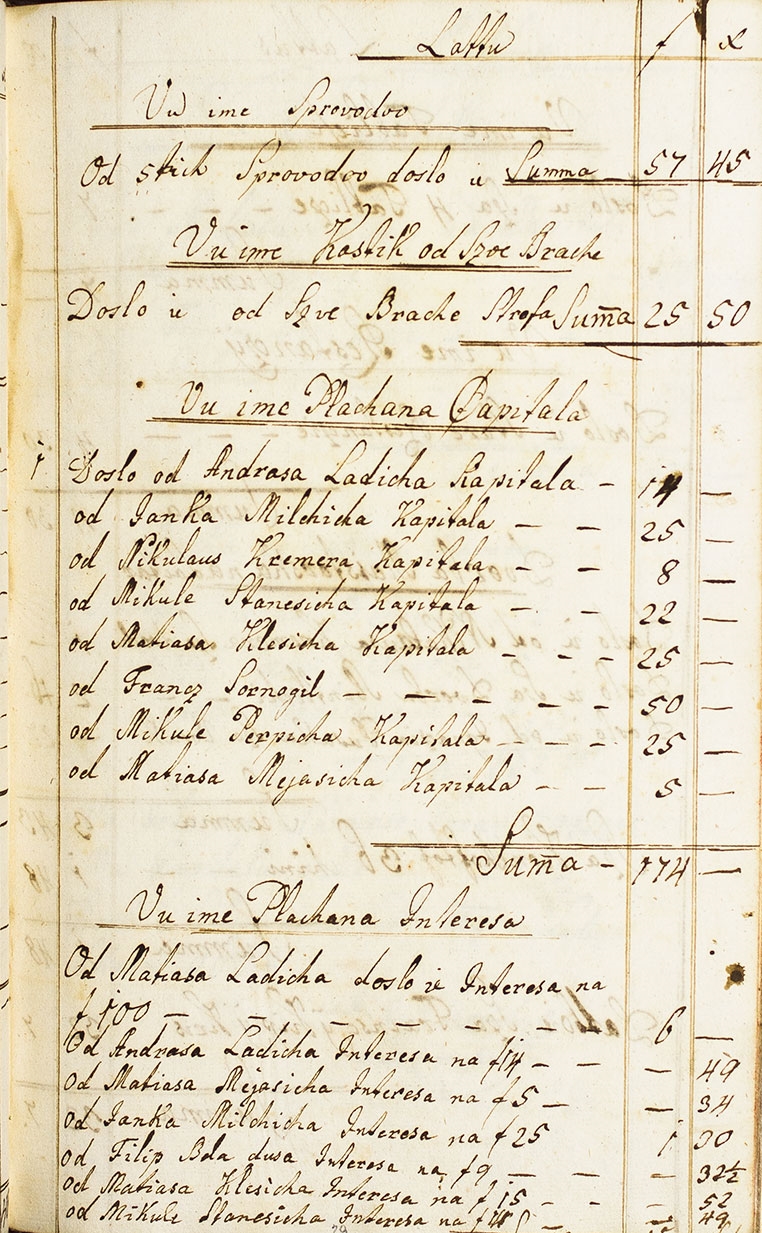 Lattu f x
Vu ime Sprovodov
Od stich Sprovodov doslo u Summa - 57 45
Vu ime Kastik od Szve Brache
Doslo ie od Szve Brache Strofa Sum̄a 25 50
Vu ime Plachana Capitala
1 Doslo od Andrasa Ladicha Kapitala - 14 —
od Janka Milchicha Kapitala — — 25 —
od Nikulaus Kremera Kapitala — - 8 —
od Mikule Stanesicha Kapitala — - 22 —
od Matiasa Klesicha Kapitala — - - 25 —
od Francz Sornogil — — — - - - 50 —
od Mikule Perpicha Kapitala - — - - 25 —
od Matiasa Mejasicha Kapitala - - 5 —
Sum̄a - 174 —
Vu ime Plachana Interesa
Od Matiasa Ladicha doslo ie Interesa na
f 100 — — — — — — — 6 —
Od Andrasa Ladicha Interesa na f 14 — - — 49
od Matiasa Mejasicha Interesa na f 5 — — 34
od Janka Milchicha Interesa na f 25 1 30
od Filip Bela dusa Interesa na f 9 — — - 32½
od Matiasa Klesicha Interesa na f 15 - - - 52
od Mikule Stanesicha Interesa na 49